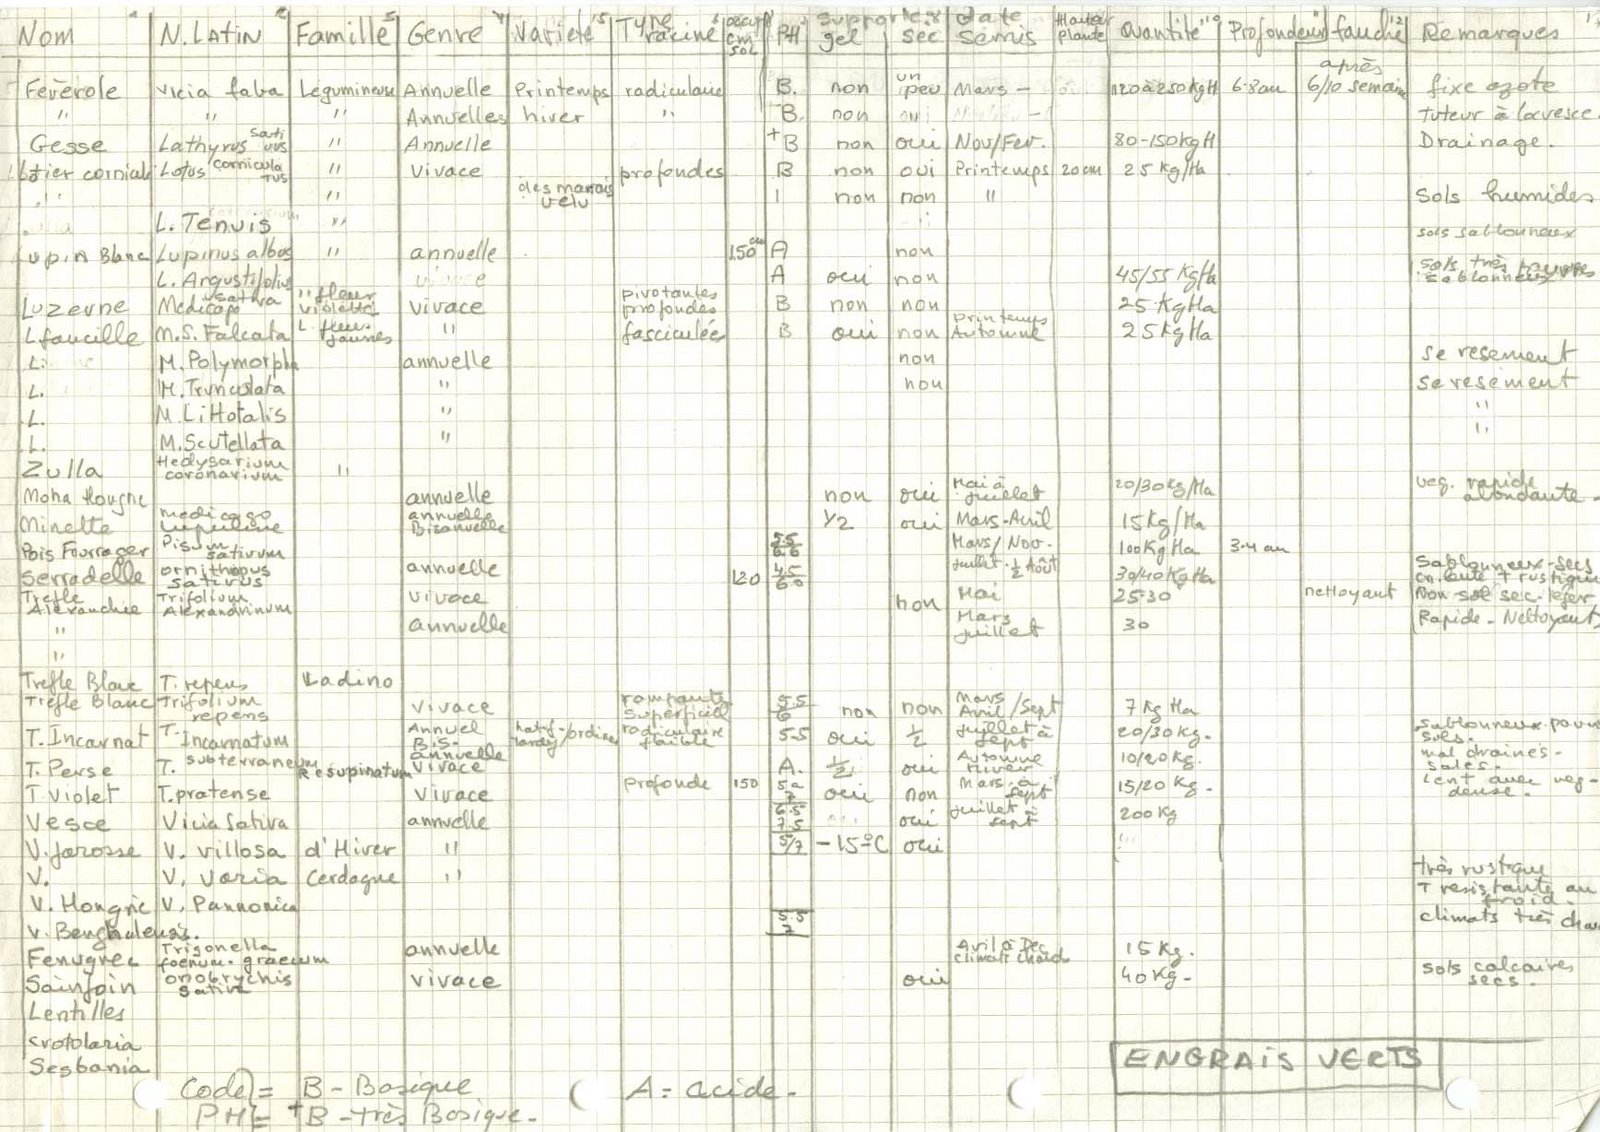 Nom N. LATIN Famille Genre Varieté Type racine occup cm sol PH supporte gel sec date semis Hauteur plante Quantité Profondeur fauche Remarques
Févèrole vicia faba Légumineuse Annuelle Printemps radiculaire B. non un peu Mars - 120 à 250 kg H après 6/10 semaine fixe azote
" " " Annuelles hiver " B. non oui tuteur à la vesce.
Gesse Lathyrus sativus " Annuelle +B non oui Nov/Fev. 80-150 kg H Drainage.
Lotier Lotus corniculatus " vivace profondes B non oui Printemps 20 cm 25 Kg/Ha
" des marais velu non non " sols humides
L. Tenuis " sols sablonneux
Lupin Blanc Lupinus albus " annuelle 150 cm A non
L. Angustifolius vivace A oui non 45/55 Kg/Ha sols très pauvres sablonneux
Luzerne Medicago sativa " fleur violette vivace pivotantes profondes B non non 25 Kg Ha
L faucille M.S. Falcata L. fleurs jaunes " fasciculée B oui non Printemps Automne 25 Kg Ha
L. M. Polymorpha annuelle non se resement
L. M. Trunculata " non se resèment
L. M. Littotalis " "
L. M. Scutellata " "
Zulla Hedysarium coronarium "
Moha Hongrie annuelle non oui Mai à juillet 20/30 Kg/Ha veg. rapide abondante -
Minette medicago lupuline annuelle Bisanuelle 1/2 oui Mars-Avril 15 Kg/Ha
Pois Fourrager Pisum sativum 5.5 6.6 Mars/Nov. 100 Kg Ha
Serradelle ornithopus sativus annuelle 120 4.5 6.0 juillet. 1/2 Août 30/40 Kg Ha Sablonneux-secs + rustique
Trefle Alexandrie Trifolium Alexandrinum vivace non Mai 25-30 nettoyant Non sol sec-léger
" annuelle Mars juillet 30 Rapide - Nettoyant
"
Trefle Blanc T. repens Ladino
Trèfle Blanc Trifolium repens vivace rampante superficiel 5.5 6 non non Mars Avril/Sept 7 Kg Ha
T. Incarnat T. Incarnatum Annuel Bis-annuelle radiculaire faible 5.5 oui 1/2 juillet à sept 20/30 Kg. sablonneux-pauvre sols.
T. Perse T. subterraneum Resupinatum vivace A. 1/2 oui Automne hiver 10/20 Kg. mal drainés - salés.
T. Violet T. pratense vivace profonde 150 5 a 7 oui non Mars à sept 15/20 Kg. Lent avec veg-dense.
Vesce Vicia Sativa annuelle 6.5 7.5 oui juillet à sept 200 Kg
V. farosse V. villosa d'Hiver " 5/7 -15°C oui
V. V. varia Cerdagne " très rustique
V. Hongrie V. Pannonica T resistante au froid.
V. Benghalensis. 5.5 7 climats très
Fenugrec Trigonella foenum-graecum annuelle Avril à Dec climats chaud 15 Kg.
Sainfoin onobrychis sativa vivace oui 40 Kg - sols calcaires secs.
Lentilles
crotolaria
Sesbania
ENGRAIS VERTS
Code PH = B - Basique A = acide.
+B - très Basique.